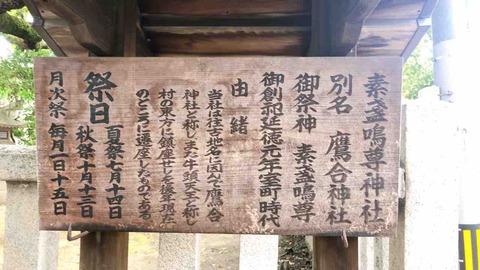 素盞嗚尊神社
別名 鷹合神社
御祭神 素盞嗚尊
御創祀延徳元年室町時代
由緒
当社は往古地名に因んで鷹合
神社と称し又牛頭天王と称し
村の東方に鎮座せしを後年現在
のところに遷座したものである
祭日
夏祭七月十四日
秋祭十月十三日
月次祭 毎月一日十五日